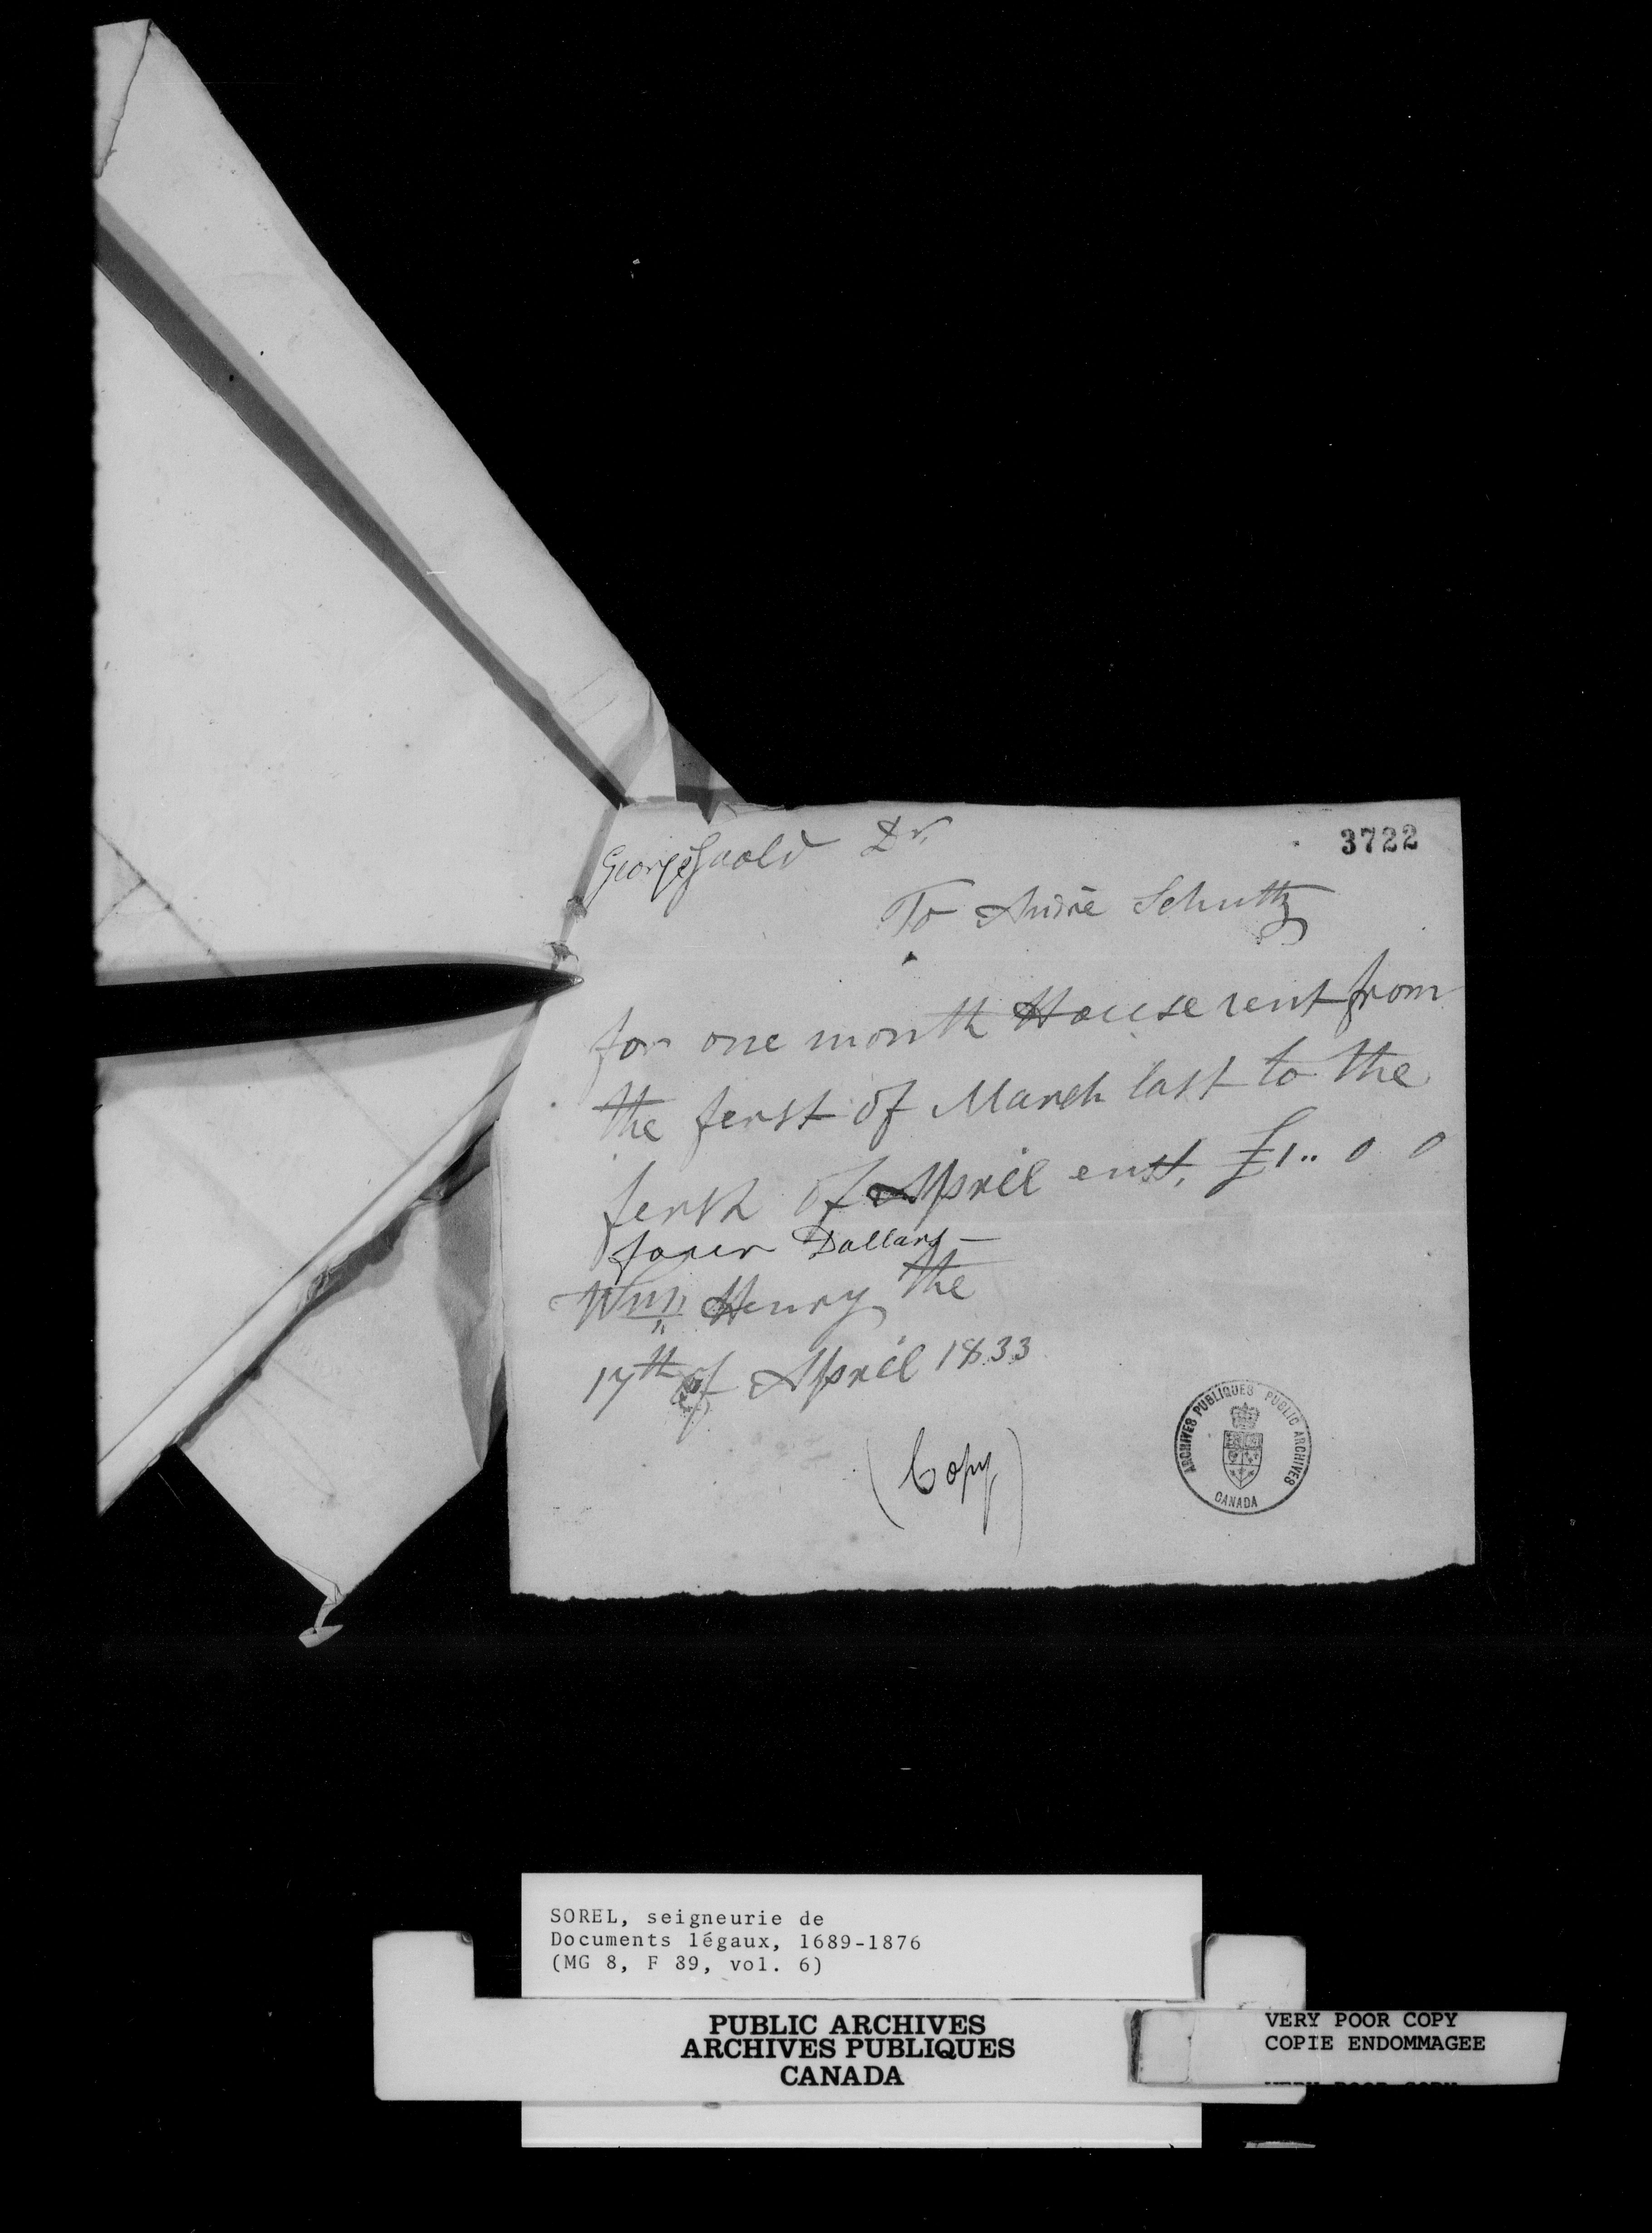 3722
George Dr.
To Andre Schuttz
for one month House rent from
the ferst of March last to the
ferst of April enst, £1.. 0 0
fouer Dallars —
Wm Henry the
17th of April 1833
(Copy)
ARCHIVES PUBLIQUES PUBLIC ARCHIVES
CANADA
SOREL, seigneurie de
Documents légaux, 1689-1876
(MG 8, F 89, vol. 6)
PUBLIC ARCHIVES
ARCHIVES PUBLIQUES
CANADA
VERY POOR COPY
COPIE ENDOMMAGEE
VERY POOR COPY